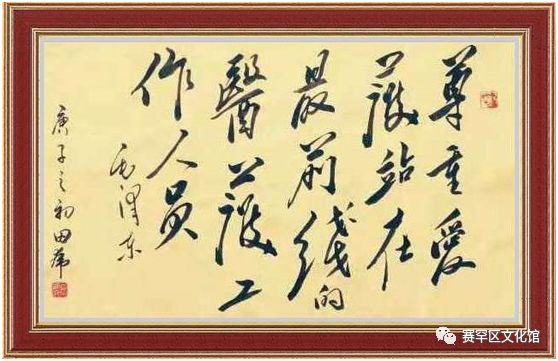 尊重愛
護站在
最前线的
醫護工
作人员
毛澤东
庚子之初田希
赛罕区文化馆